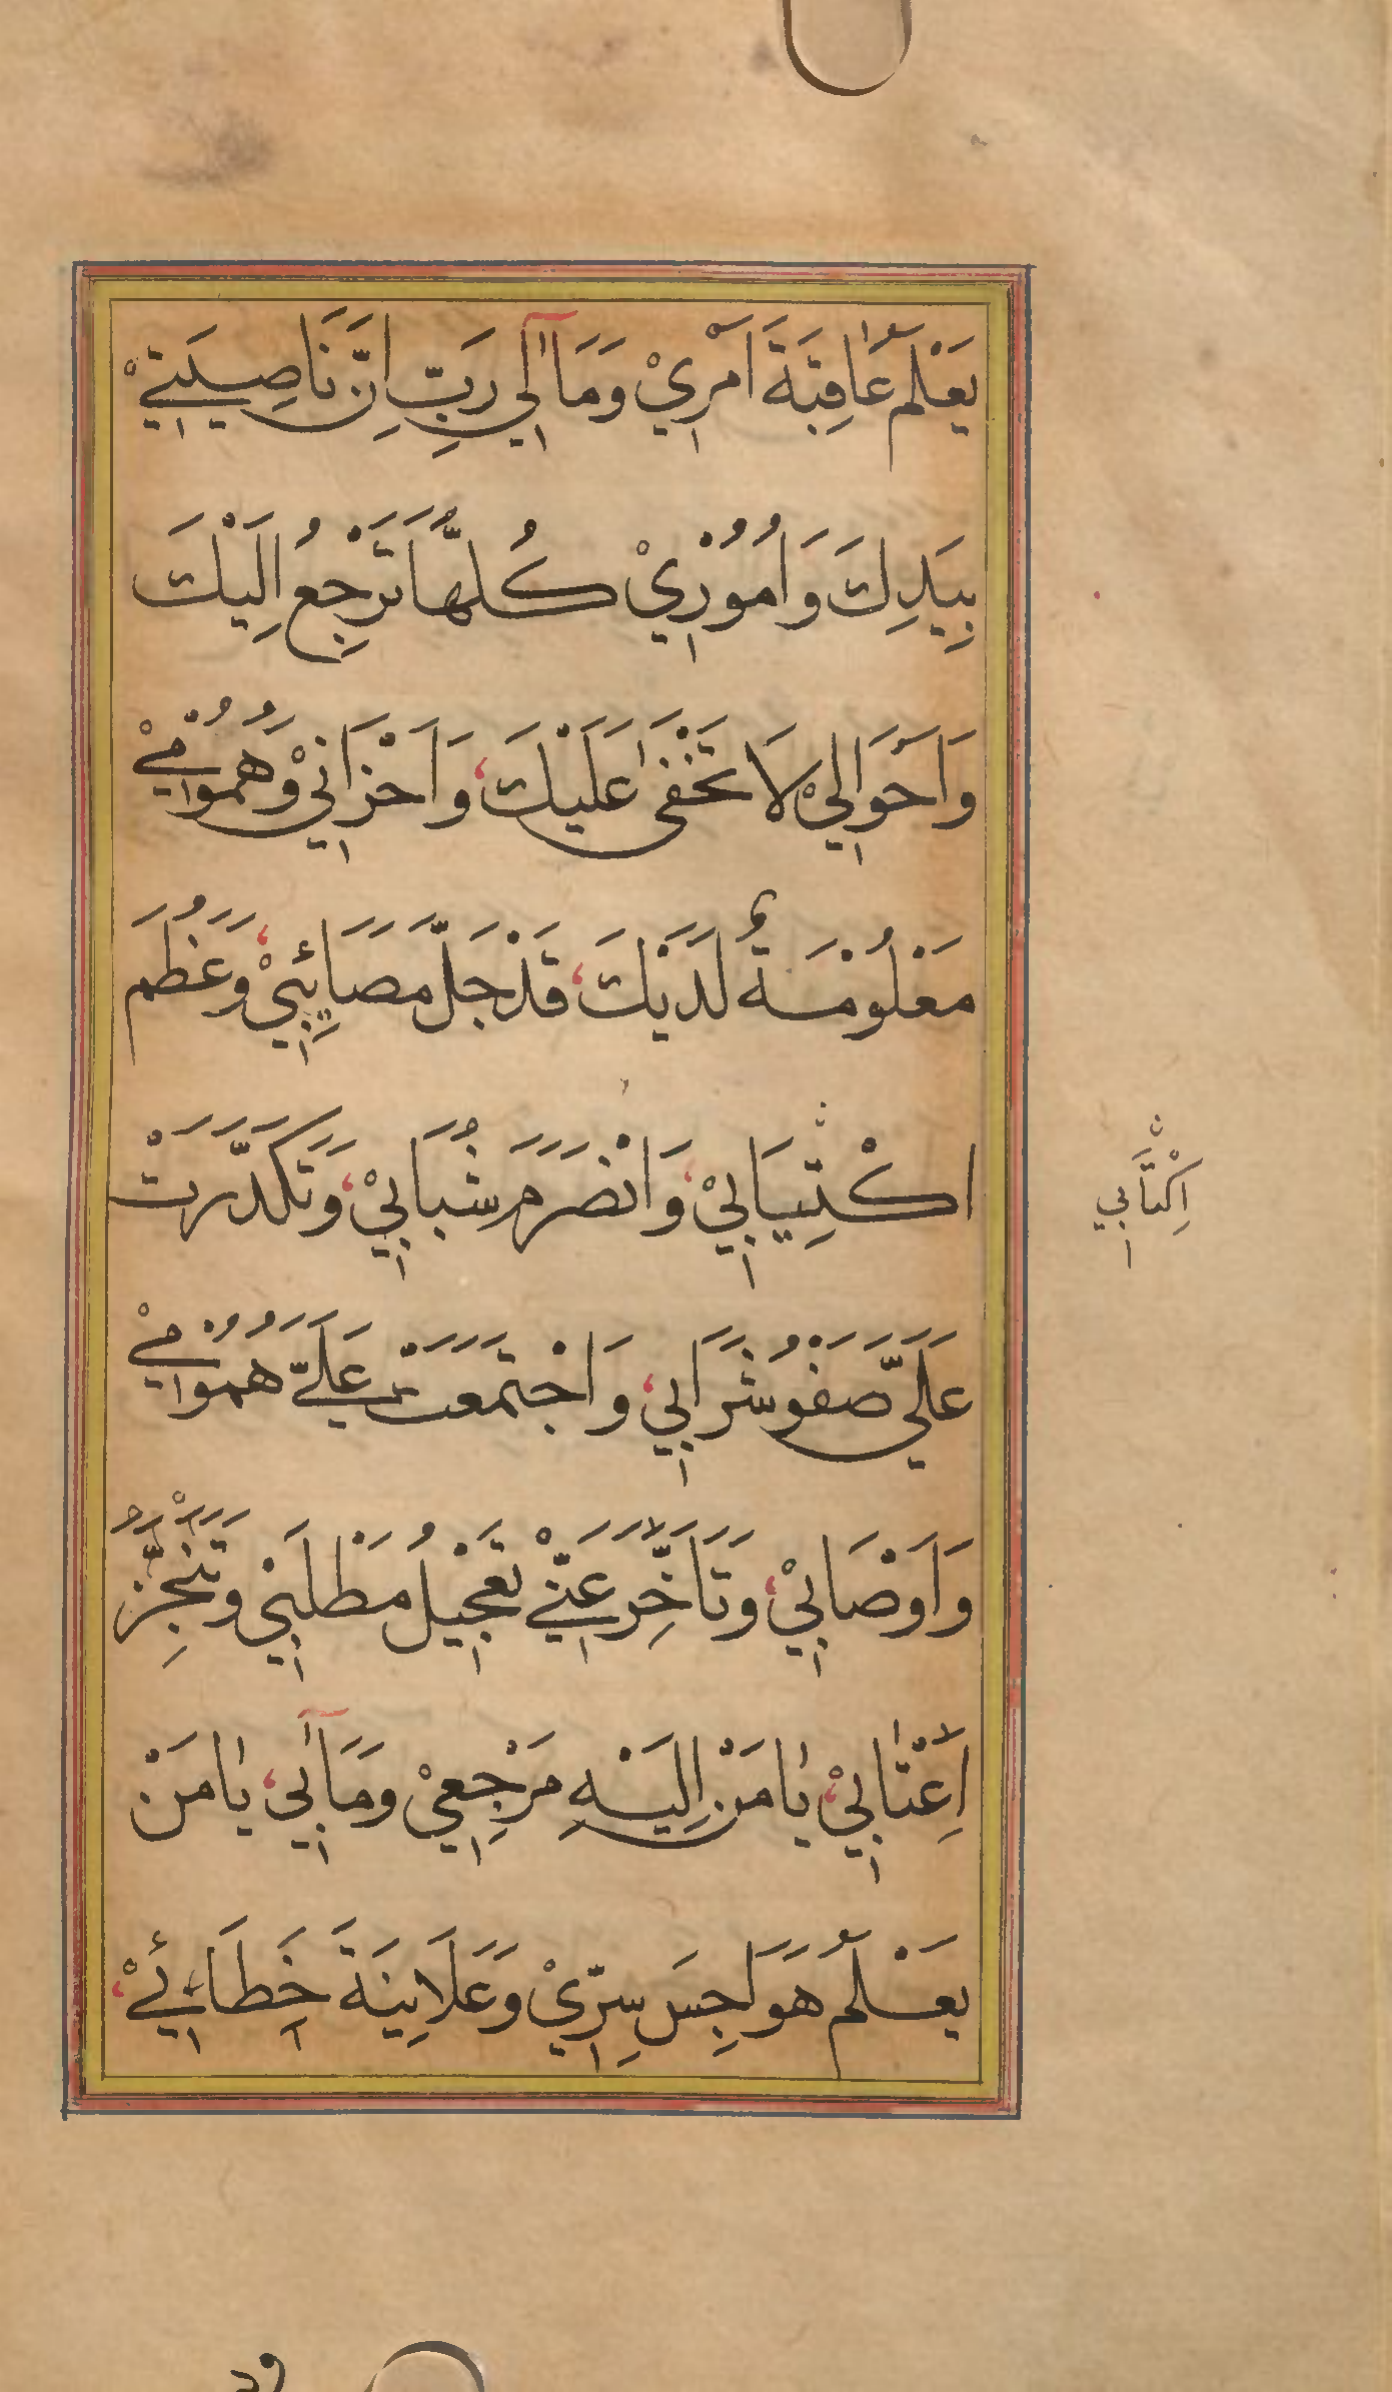 يَعْلَمُ عَاقِبَةَ اَمْرِيْ وَمَآلِي رَبِّ اِنَّ نَاصِيَتِيْ
بِيَدِكَ وَاُمُوْرِيْ كُلُّهَا تَرْجِعُ اِلَيْكَ
وَاَحْوَالِيْ لَا تَخْفَى عَلَيْكَ، وَاَحْزَانِيْ وَهُمُوْمِيْ
مَعْلُوْمَةٌ لَدَيْكَ، قَدْ جَلَّ مَصَائِبِيْ، وَعَظُمَ
اكْتِيَابِيْ، وَانْصَرَمَ شَبَابِيْ، وَتَكَدَّرَتْ
عَلَيَّ صَفْوُ شَرَابِي، وَاجْتَمَعَتْ عَلَيَّ هُمُوْمِيْ
وَاَوْصَابِيْ، وَتَاَخَّرَ عَنِّيْ تَعْجِيْلُ مَطْلَبِي وَتَنَجُّزُ
اِعْتَابِيْ، يَا مَنْ اِلَيْهِ مَرْجِعِيْ وَمَآبِي، يَا مَنْ
يَعْلَمُ هَوَاجِسَ سِرِّيْ وَعَلَانِيَةَ خَطَائِيْ،
اِكْتَابِي